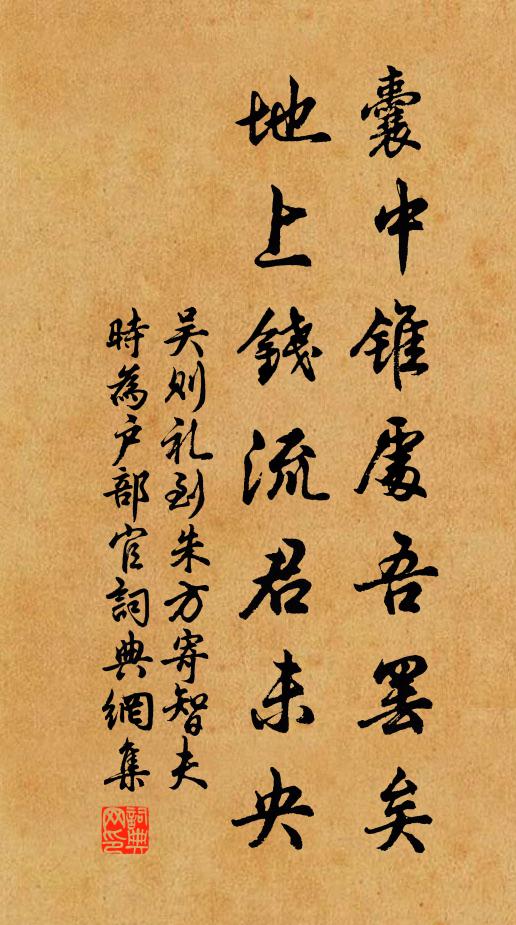 囊中錐處吾罢矣
地上錢流君未央
吴则礼到朱方寄智夫
時為户部官詞典網集
詞典網印